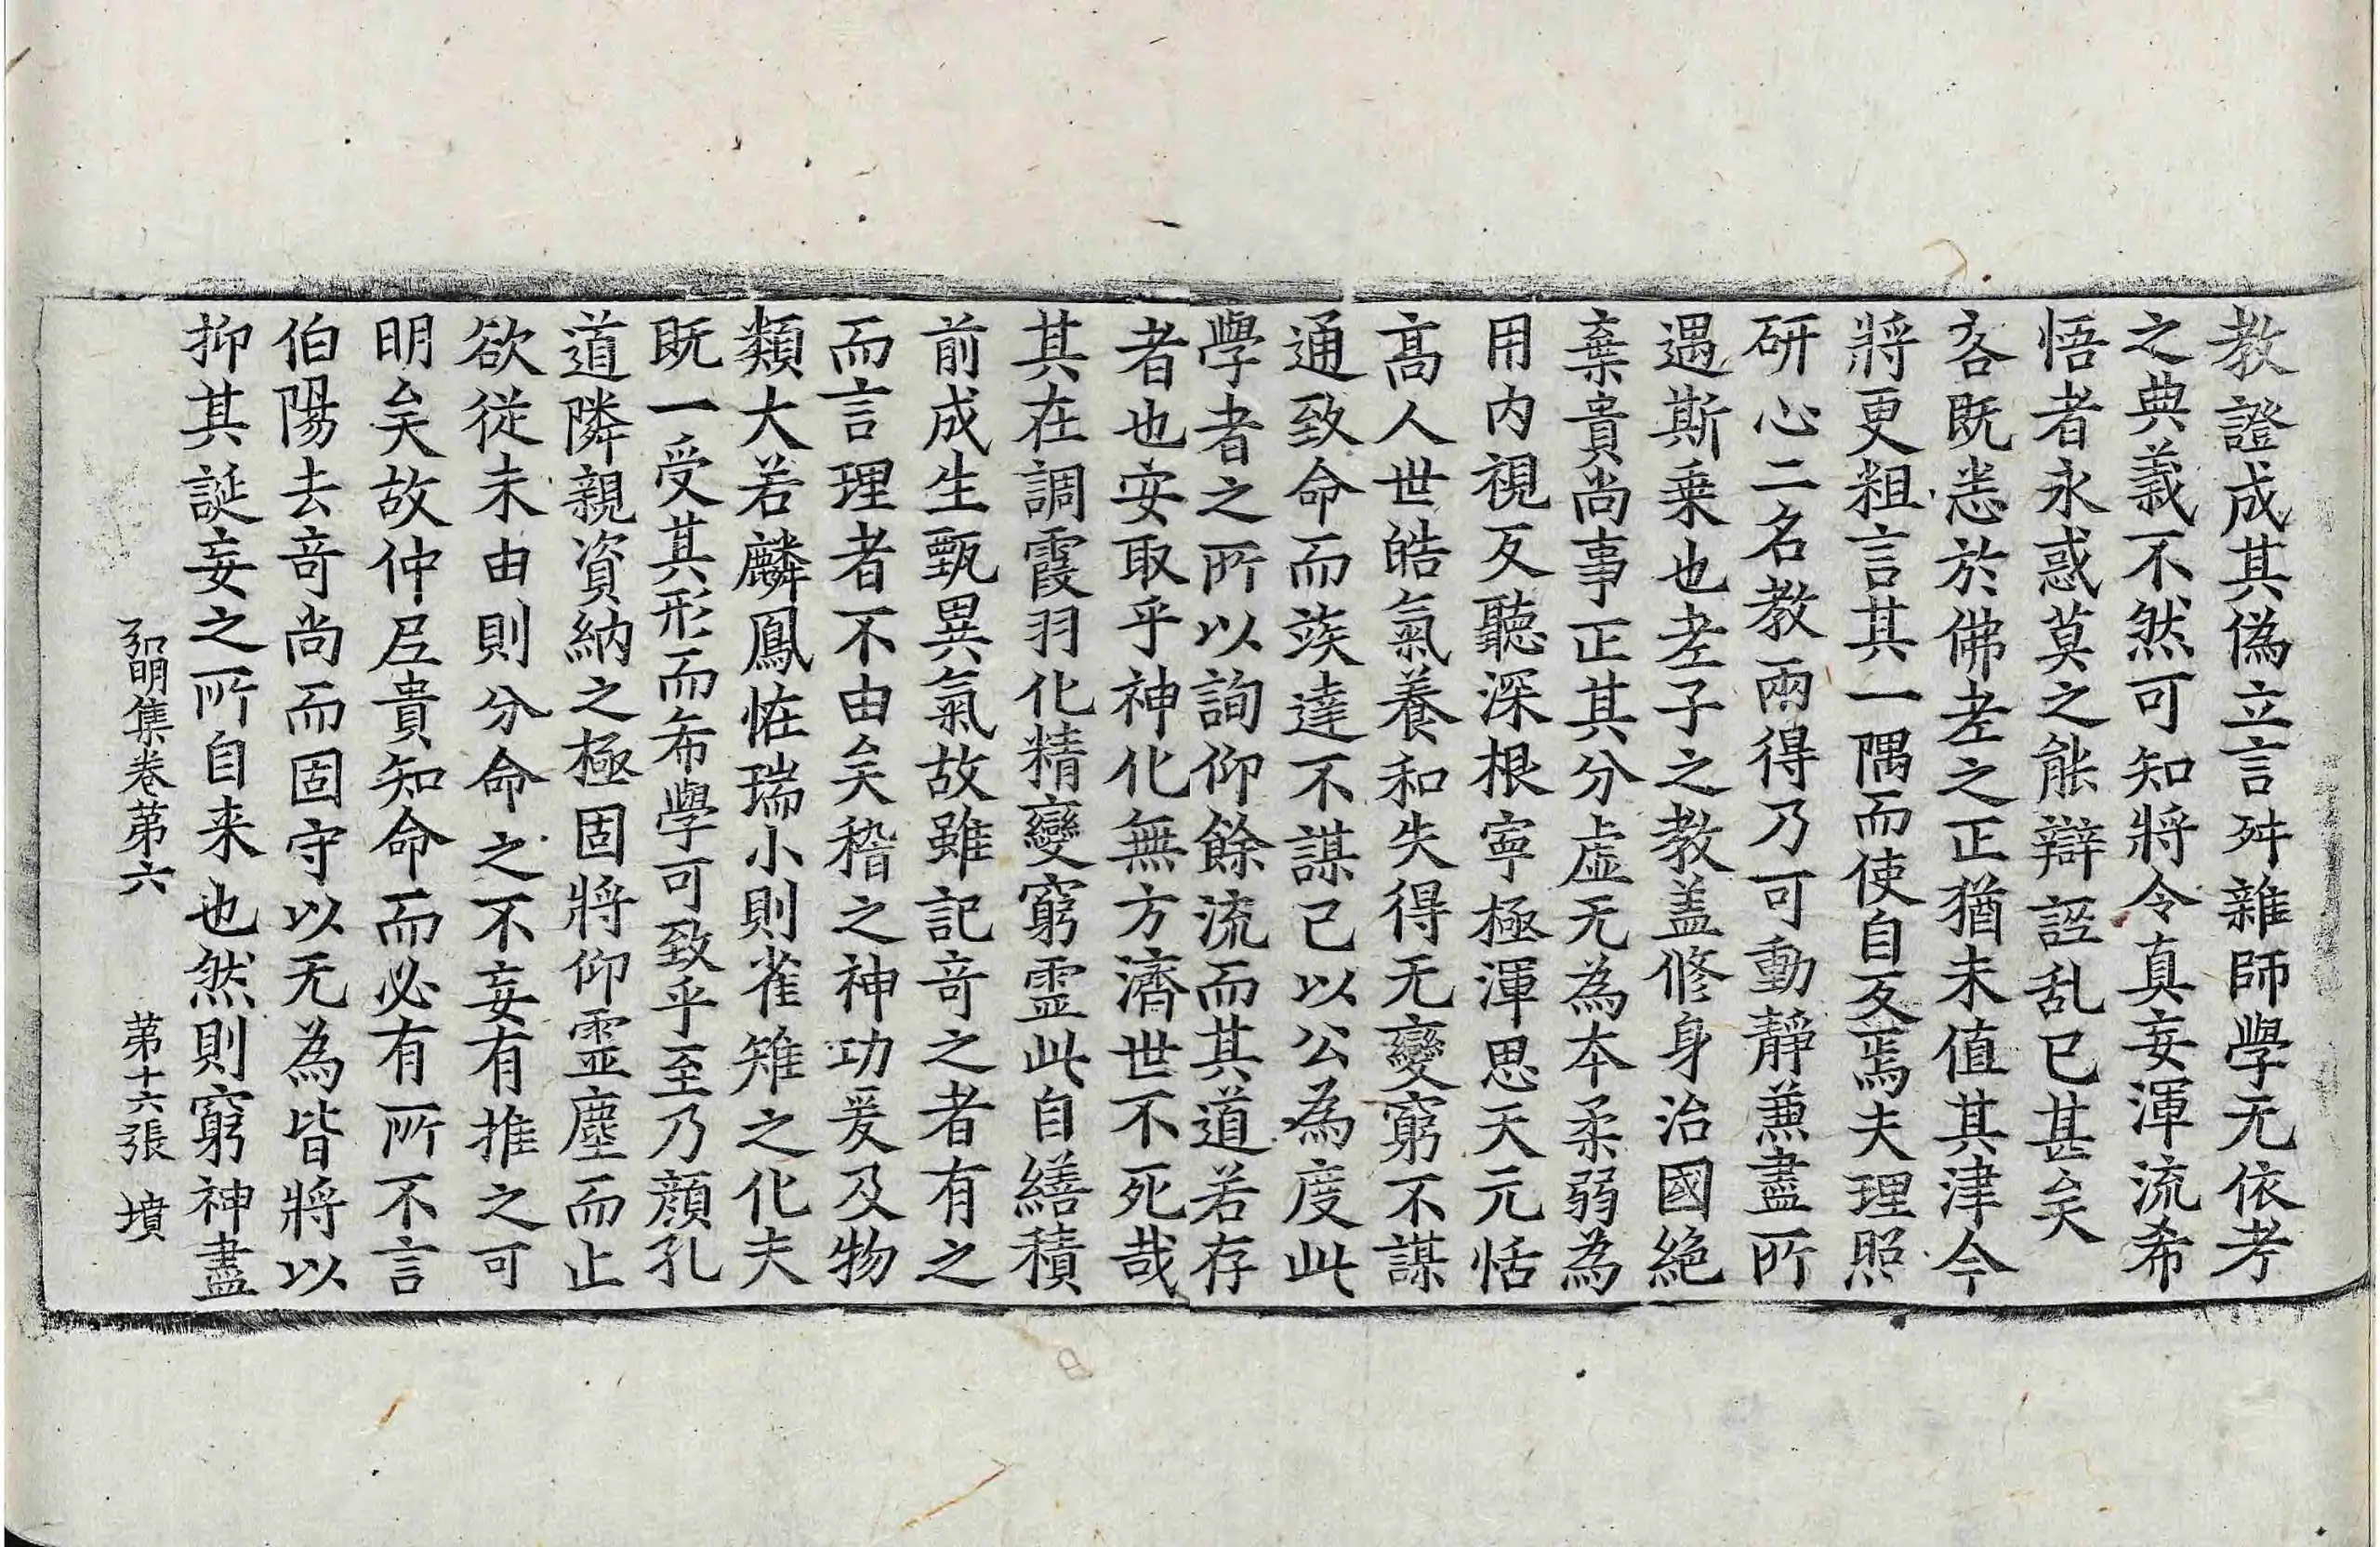 教證成其偽立言舛雜師學无依考
之典義不然可知將令真妄渾流希
悟者永惑莫之能辯誣乱已甚矣
客既悉於佛老之正猶未值其津今
將更粗言其一隅而使自反焉夫理照
研心二名教兩得乃可動靜兼盡所
遇斯乗也老子之教盖修身治國絶
棄貴尚事正其分虚无為本柔弱為
用内視反聽深根寜極渾思天元恬
髙人世皓氣養和失得无變窮不謀
通致命而俟達不謀己以公為度此
學者之所以詢仰餘流而其道若存
者也安取乎神化無方濟世不死哉
其在調霞羽化精變窮霊此自繕積
前成生甄異氣故雖記竒之者有之
而言理者不由矣稽之神功爰及物
類大若麟鳳恠瑞小則雀雉之化夫
既一受其形而希學可致乎至乃顔孔
道隣親資納之極固將仰霊塵而止
欲従未由則分命之不妄有推之可
明矣故仲𡰱貴知命而必有所不言
伯陽去竒尚而固守以无為皆將以
抑其誕妄之所自来也然則窮神盡
弘明集卷苐六　苐十六張　墳